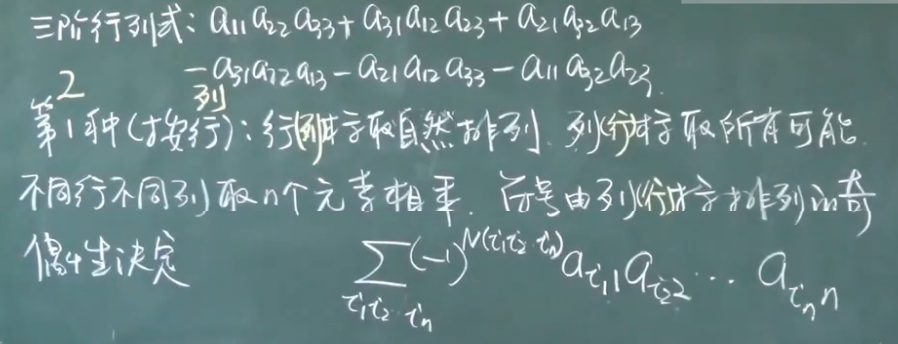 三阶行列式: a₁₁a₂₂a₃₃ + a₃₁a₁₂a₂₃ + a₂₁a₃₂a₁₃
-a₃₁a₂₂a₁₃ - a₂₁a₁₂a₃₃ - a₁₁a₃₂a₂₃.
2 列
第1种(按行): 行(列)标取自然排列. 列(行)标取所有可能.
不同行不同列取n个元素相乘. 符号由列(行)标排列的奇
偶性决定 ∑(-1)^N(i₁i₂ iₙ) a_i₁1 a_i₂2 … a_iₙn
i₁i₂…iₙ